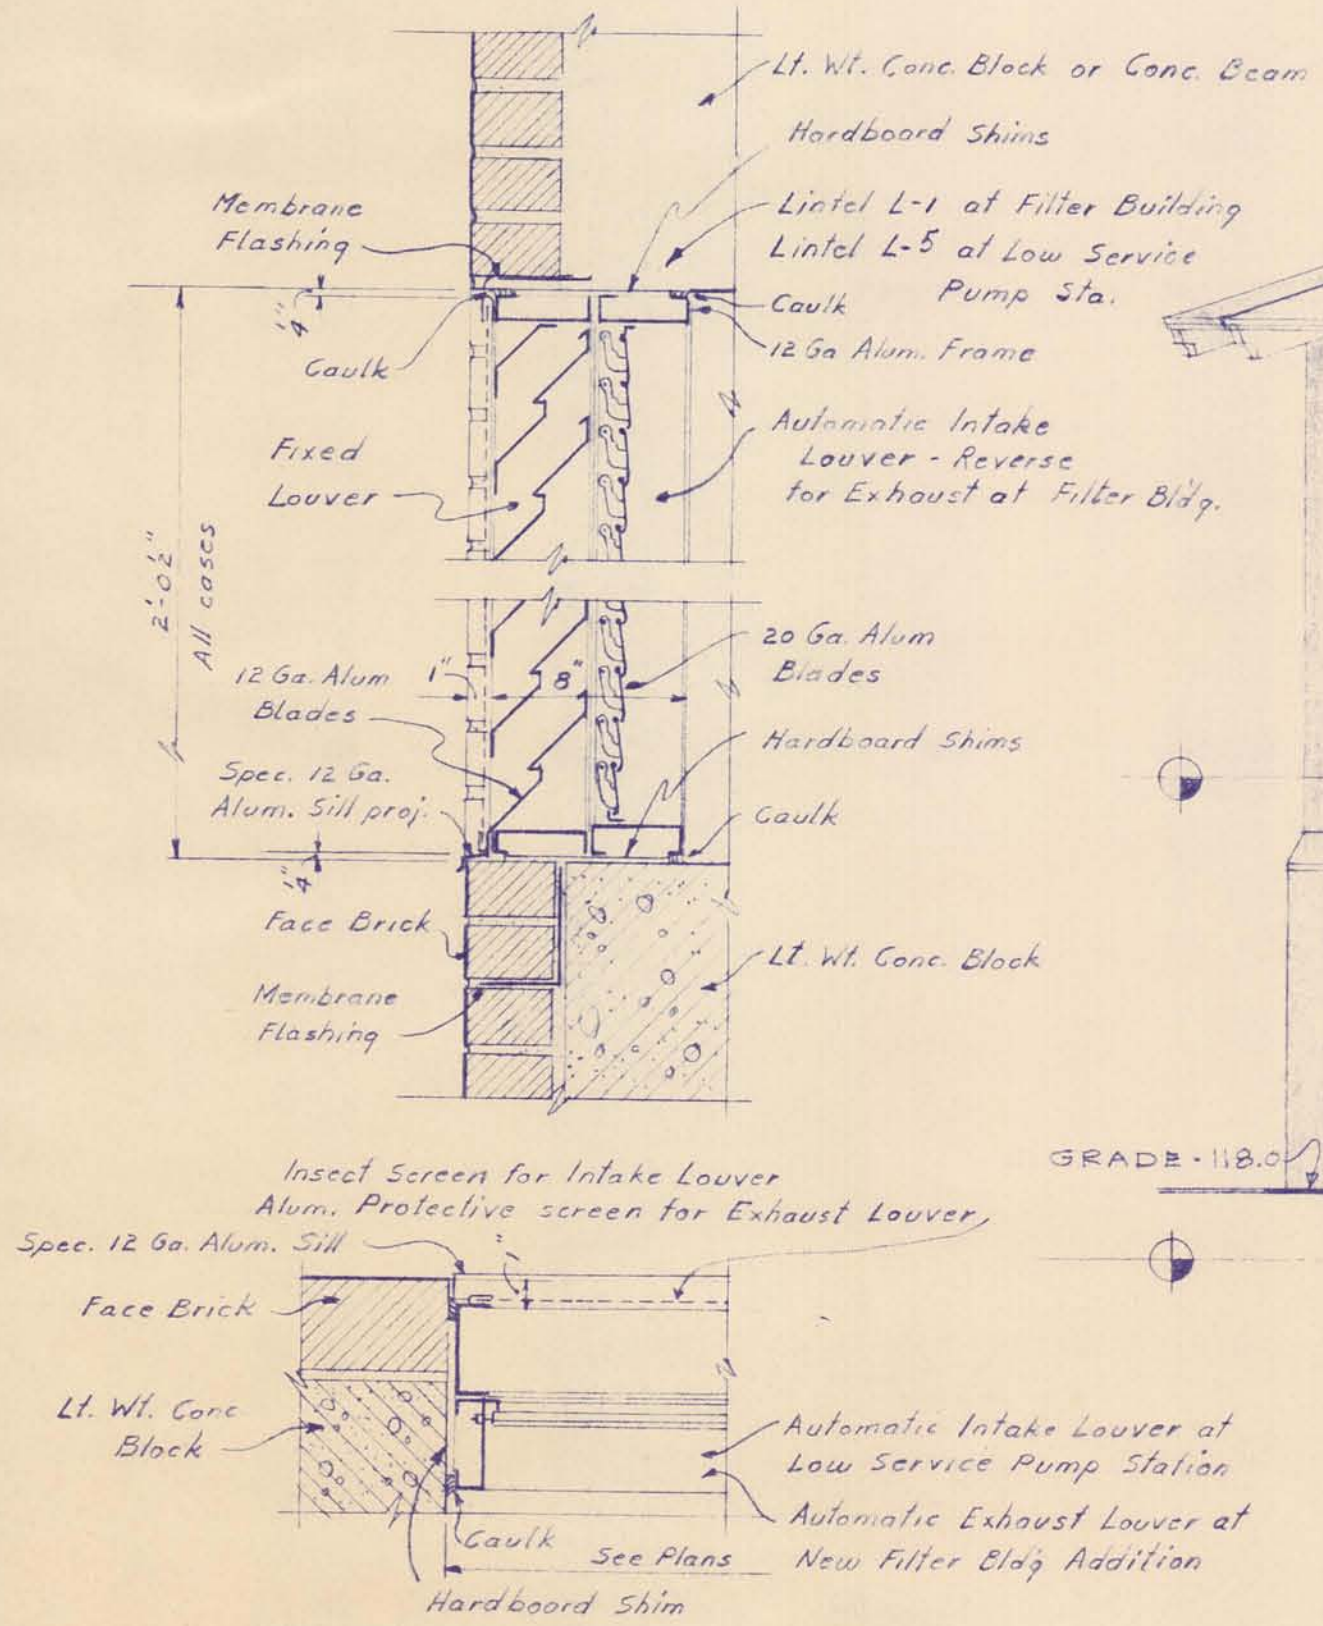 Lt. Wt. Conc. Block or Conc. Beam
Hardboard Shims
Membrane
Flashing
Lintel L-1 at Filter Building
Lintel L-5 at Low Service
Pump Sta.
1/4"
Caulk
Caulk
12 Ga Alum. Frame
Fixed
Louver
Automatic Intake
Louver - Reverse
for Exhaust at Filter Bldg.
2'-0 1/2"
All cases
20 Ga. Alum
Blades
12 Ga. Alum
Blades
1"
8"
Hardboard Shims
Spec. 12 Ga.
Alum. Sill proj.
Caulk
1/4"
Face Brick
Lt. Wt. Conc. Block
Membrane
Flashing
GRADE - 118.0
Insect Screen for Intake Louver
Alum. Protective screen for Exhaust Louver
Spec. 12 Ga. Alum. Sill
1"
Face Brick
Lt. Wt. Conc
Block
Automatic Intake Louver at
Low Service Pump Station
Automatic Exhaust Louver at
New Filter Bldg Addition
Caulk
See Plans
Hardboard Shim